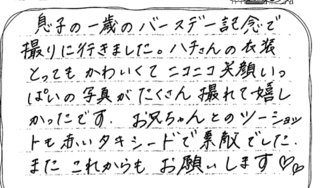 息子の一歳のバースデー記念で
撮りに行きました。ハチさんの衣装
とってもかわいくてニコニコ笑顔いっ
ぱいの写真がたくさん撮れて嬉し
かったです。 お兄ちゃんとのツーショッ
トも赤いタキシードで素敵でした。
また これからも お願いします♡♡